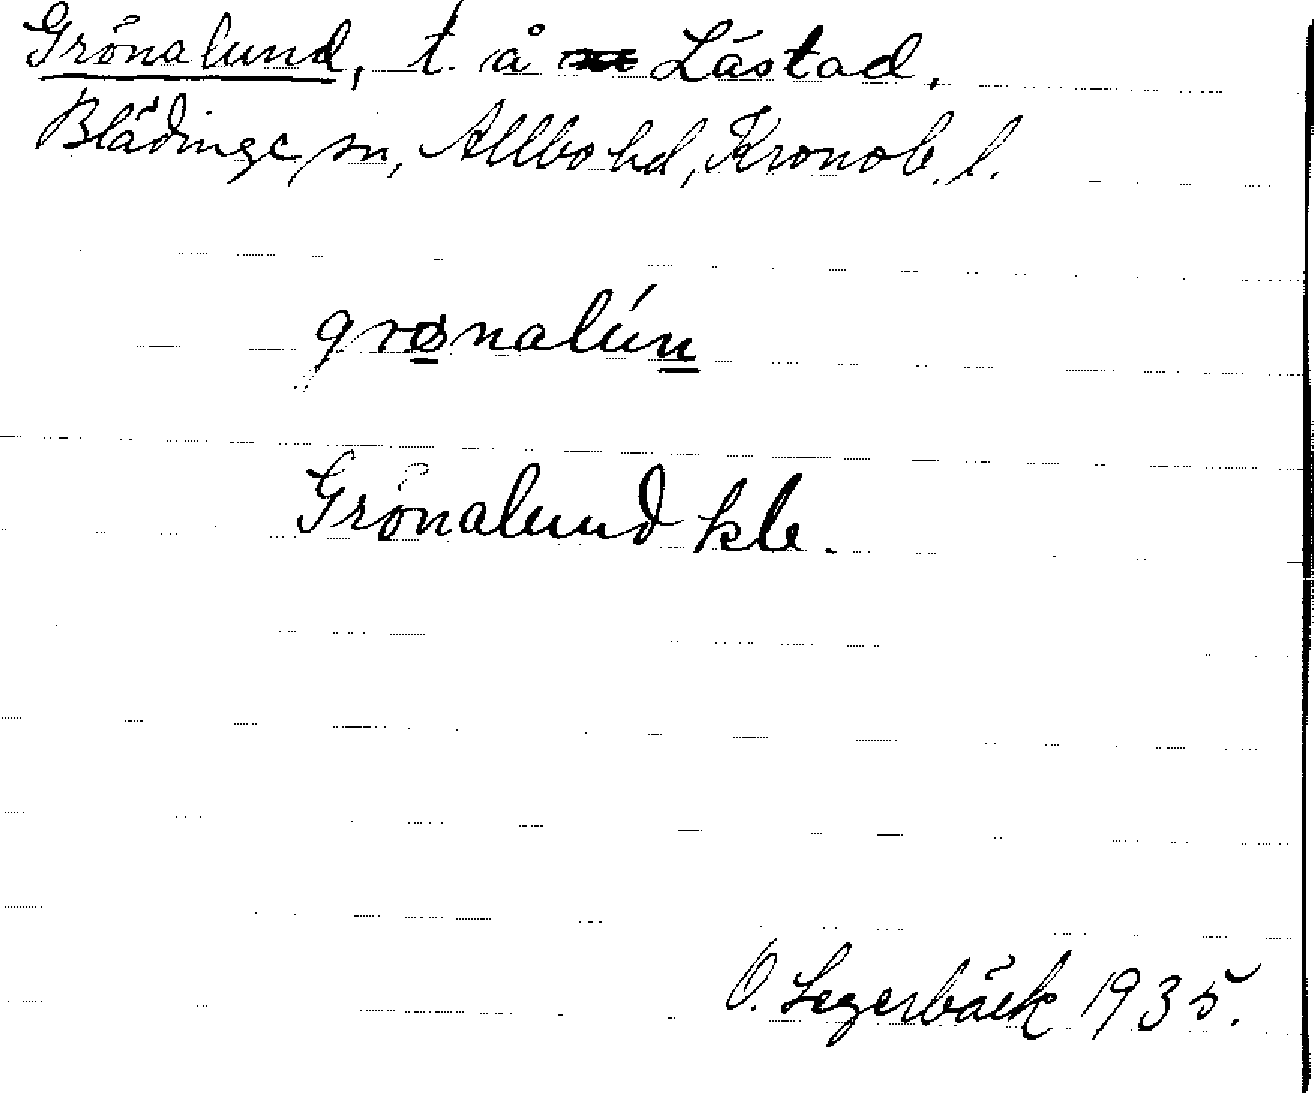 Grönalund, t. å Låstad,
Blädinge sn, Allbo hd, Kronob. l.
grønalún
Grönalund kle.
O. Segerbäck 1935.